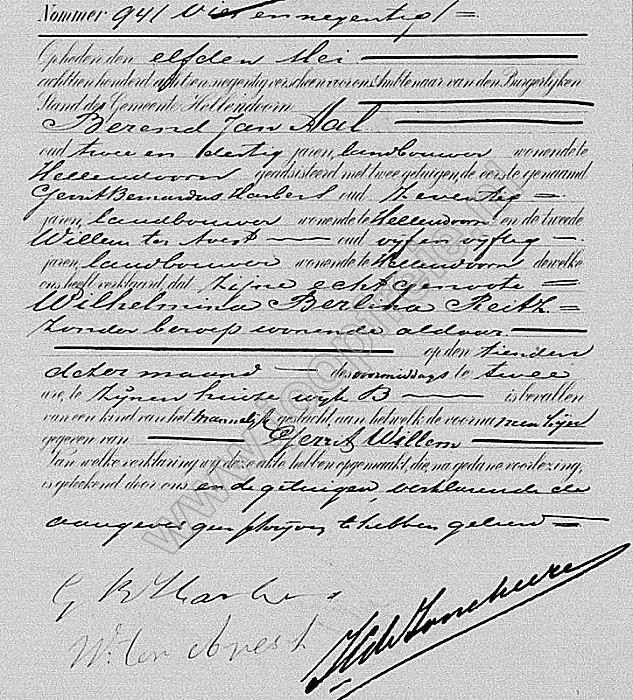 Nommer 94 / Vier en negentig / =
Op heden den elfden Mei
achttienhonderd acht en negentig verscheen voor ons Ambtenaar van den Burgerlijken
Stand der Gemeente Hellendoorn
Berend Jan Aal
oud twee en dertig jaren, landbouwer wonende te
Hellendoorn geadsisteerd met twee getuigen, de eerste genaamd
Gerrit Bernardus Harbers oud zeventig =
jaren, landbouwer wonende te Hellendoorn en de tweede
Willem ter Avest — oud vyf en vyftig —
jaren, landbouwer wonende te Hellendoorn dewelke
ons heeft verklaard, dat zijne echtgenoote =
Wilhelmina Berlina Reith =
zonder beroep wonende aldaar
op den tienden
dezer maand — des voormiddags te twee
ure, te zijnen huize wijk B — is bevallen
van een kind van het mannelijk geslacht, aan hetwelk de voornamen zijn
gegeven van Gerrit Willem
Van welke verklaring wij deze akte hebben opgemaakt, die, na gedane voorlezing,
is geteekend door ons en de getuigen, verklarende de
aangever geen schrijven te hebben geleerd =
G B Harbers
W. ter Avest
www.